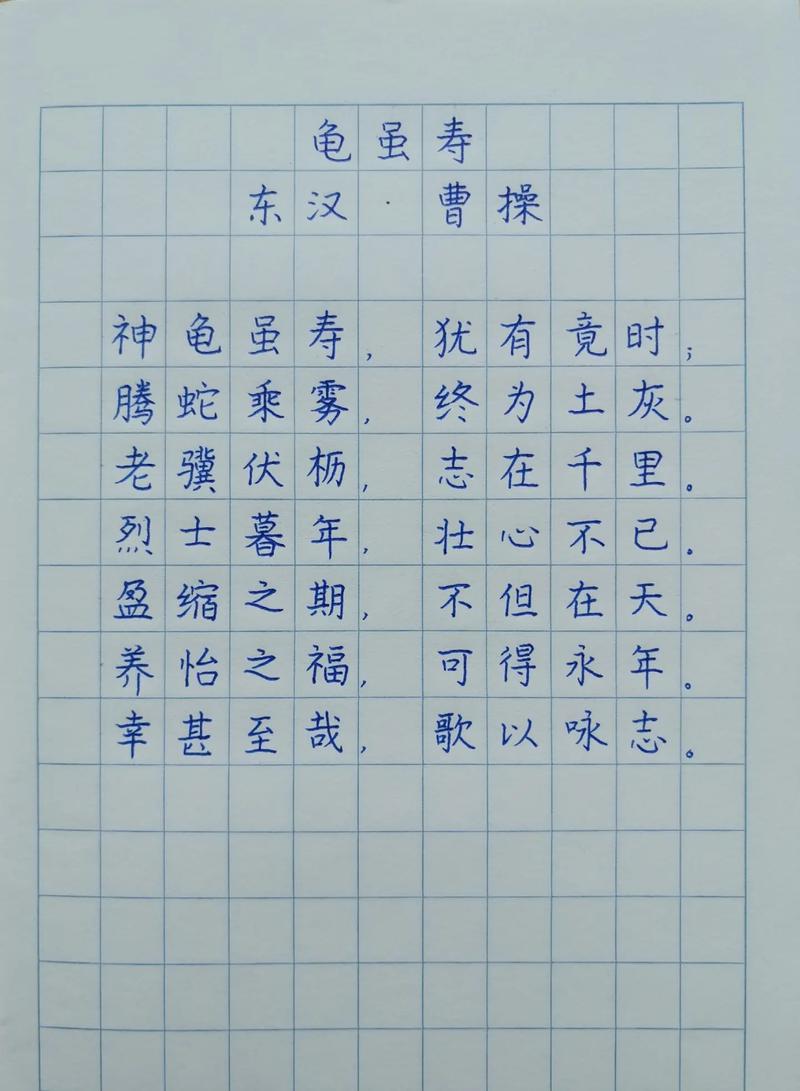 龟虽寿
东汉·曹操
神龟虽寿，犹有竟时；
腾蛇乘雾，终为土灰。
老骥伏枥，志在千里。
烈士暮年，壮心不已。
盈缩之期，不但在天。
养怡之福，可得永年。
幸甚至哉，歌以咏志。